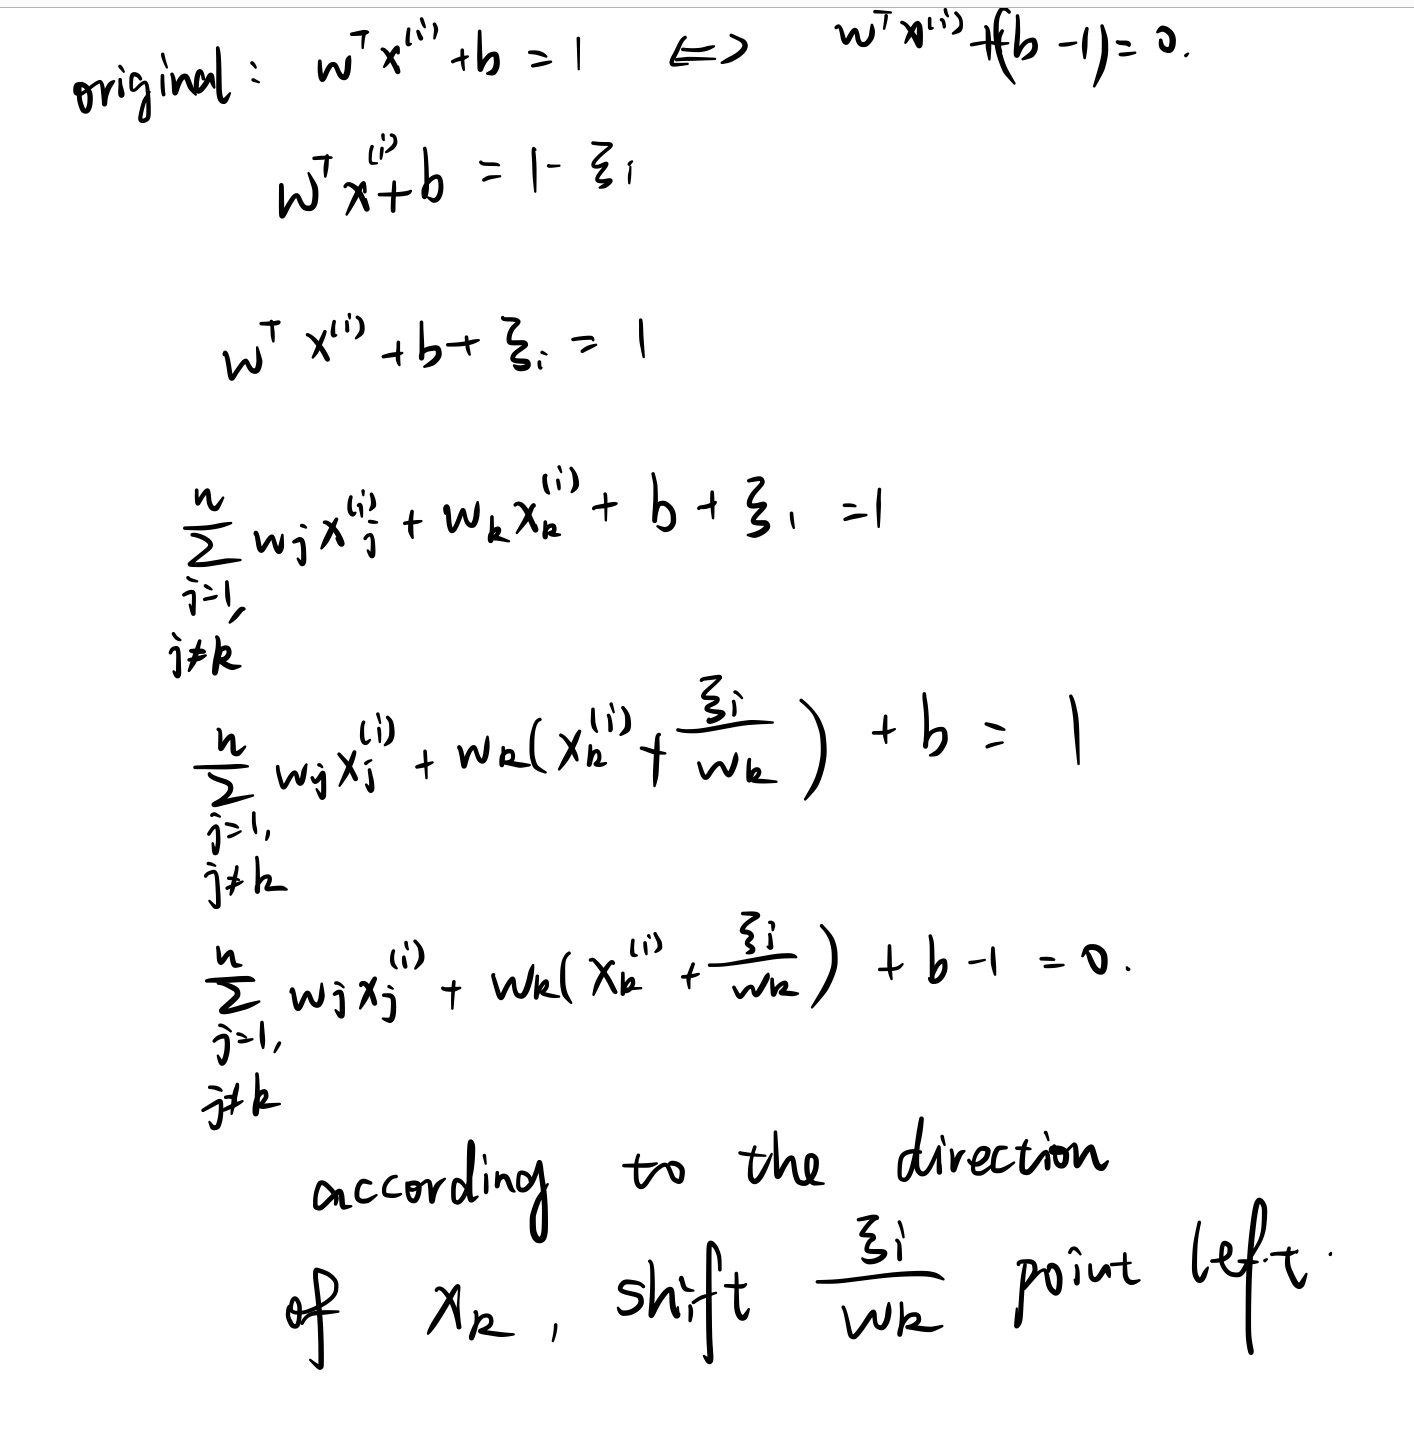 original: w^T x^(i) + b = 1 ⟺ w^T x^(i) + (b - 1) = 0.
w^T x^(i) + b = 1 - ξ_i
w^T x^(i) + b + ξ_i = 1
∑_{j=1, j≠k}^{n} w_j x_j^(i) + w_k x_k^(i) + b + ξ_i = 1
∑_{j=1, j≠k}^{n} w_j x_j^(i) + w_k (x_k^(i) + ξ_i / w_k) + b = 1
∑_{j=1, j≠k}^{n} w_j x_j^(i) + w_k (x_k^(i) + ξ_i / w_k) + b - 1 = 0.
according to the direction
of x_k, shift ξ_i / w_k point left.